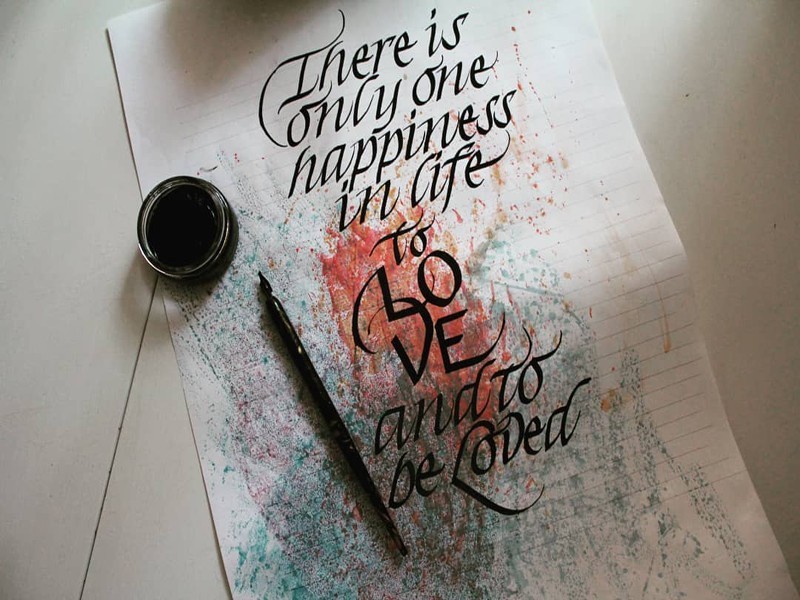 There is
only one
happiness
in life
to
LO
VE
and to
be Loved